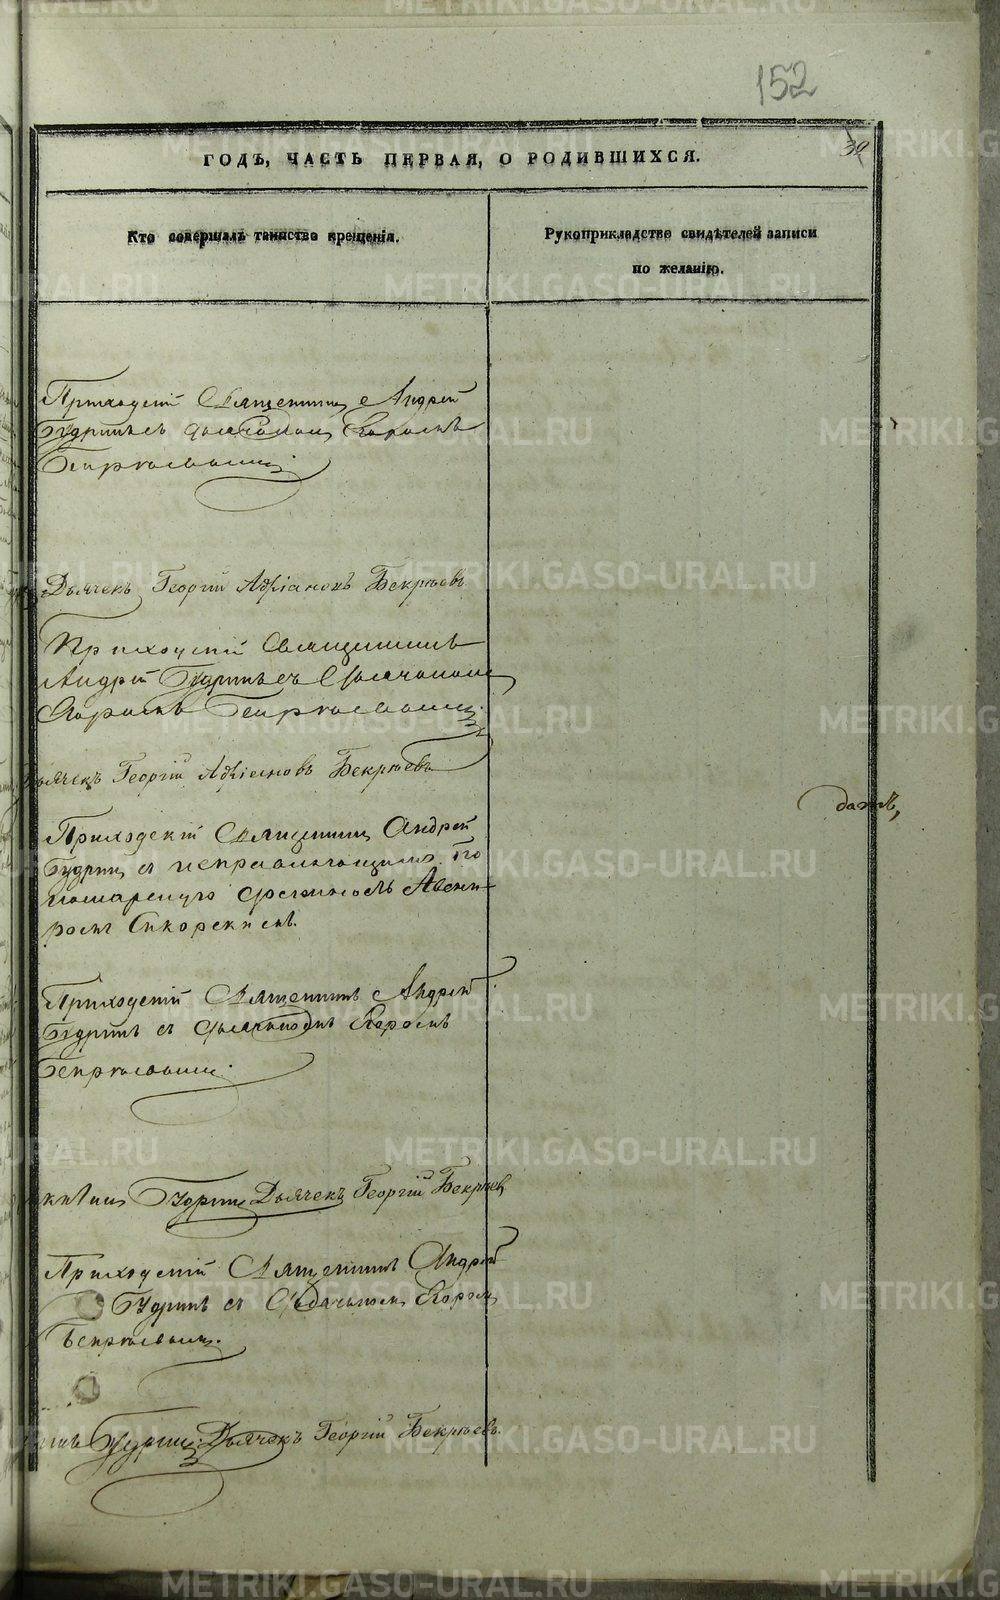 152
39
ГОДЪ, ЧАСТЬ ПЕРВАЯ, О РОДИВШИХСЯ.
Кто совершалъ таинство крещенія.
Рукоприкладство свидѣтелей записи
по желанію.
Приходскій Священникъ Андрей
Будринъ съ дьячкомъ
Бекрѣевымъ
Дьячекъ Георгій Адріановъ Бекрѣевъ
Приходскій Священникъ
Андрей Будринъ съ
Бекрѣевымъ
Дьячекъ Георгій Адріановъ Бекрѣевъ
Приходскій Священникъ Андрей
Будринъ съ исправляющимъ по
номарскую должность
Сикорскимъ.
Приходскій Священникъ Андрей
Будринъ съ
Бекрѣевымъ.
Будринъ Дьячекъ Георгій Бекрѣевъ
Приходскій Священникъ Андрей
Будринъ съ
Бекрѣевымъ.
Будринъ. Дьячекъ Георгій Бекрѣевъ.
METRIKI.GASO-URAL.RU